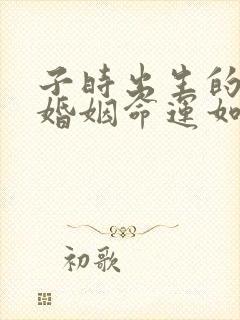 子时出生的
婚姻命运如
初歌